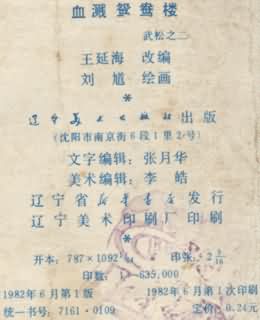 血溅鸳鸯楼
武松之二
王延海 改编
刘馗 绘画
*
辽宁美术出版社出版
(沈阳市南京街6段1里2号)
文字编辑：张月华
美术编辑：李皓
辽宁省新华书店发行
辽宁美术印刷厂印刷
*
开本：787×1092 印张：2 9/16
印数：1—635,000
1982年6月第1版 1982年6月第1次印刷
统一书号：7161·0109 定价：0.24元